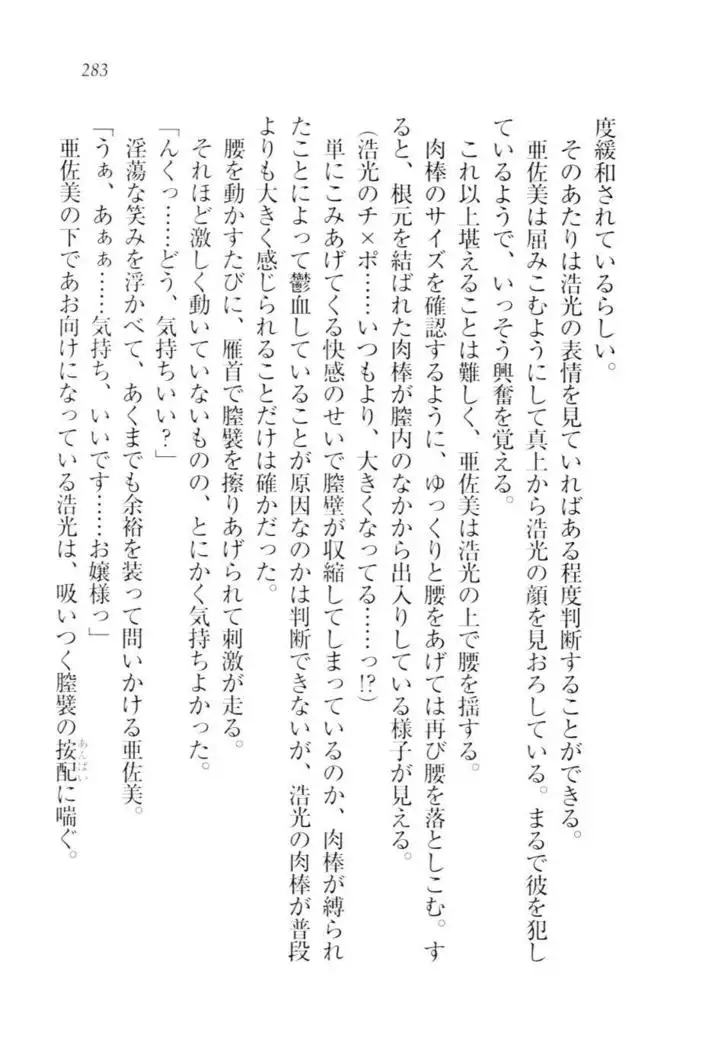 283
度緩和されているらしい。
そのあたりは浩光の表情を見ていればある程度判断することができる。
亜佐美は屈みこむようにして真上から浩光の顔を見おろしている。まるで彼を犯し
ているようで、いっそう興奮を覚える。
これ以上堪えることは難しく、亜佐美は浩光の上で腰を揺する。
肉棒のサイズを確認するように、ゆっくりと腰をあげては再び腰を落としこむ。す
ると、根元を結ばれた肉棒が膣内のなかから出入りしている様子が見える。
(浩光のチ×ポ……いつもより、大きくなってる……っ!?)
単にこみあげてくる快感のせいで膣壁が収縮してしまっているのか、肉棒が縛られ
たことによって鬱血していることが原因なのかは判断できないが、浩光の肉棒が普段
よりも大きく感じられることだけは確かだった。
腰を動かすたびに、雁首で膣襞を擦りあげられて刺激が走る。
それほど激しく動いていないものの、とにかく気持ちよかった。
「んくっ……どう、気持ちいい?」
淫蕩な笑みを浮かべて、あくまでも余裕を装って問いかける亜佐美。
「うぁ、あぁぁ……気持ち、いいです……お嬢様っ」
亜佐美の下であお向けになっている浩光は、吸いつく膣襞の按配に喘ぐ。
あんばい